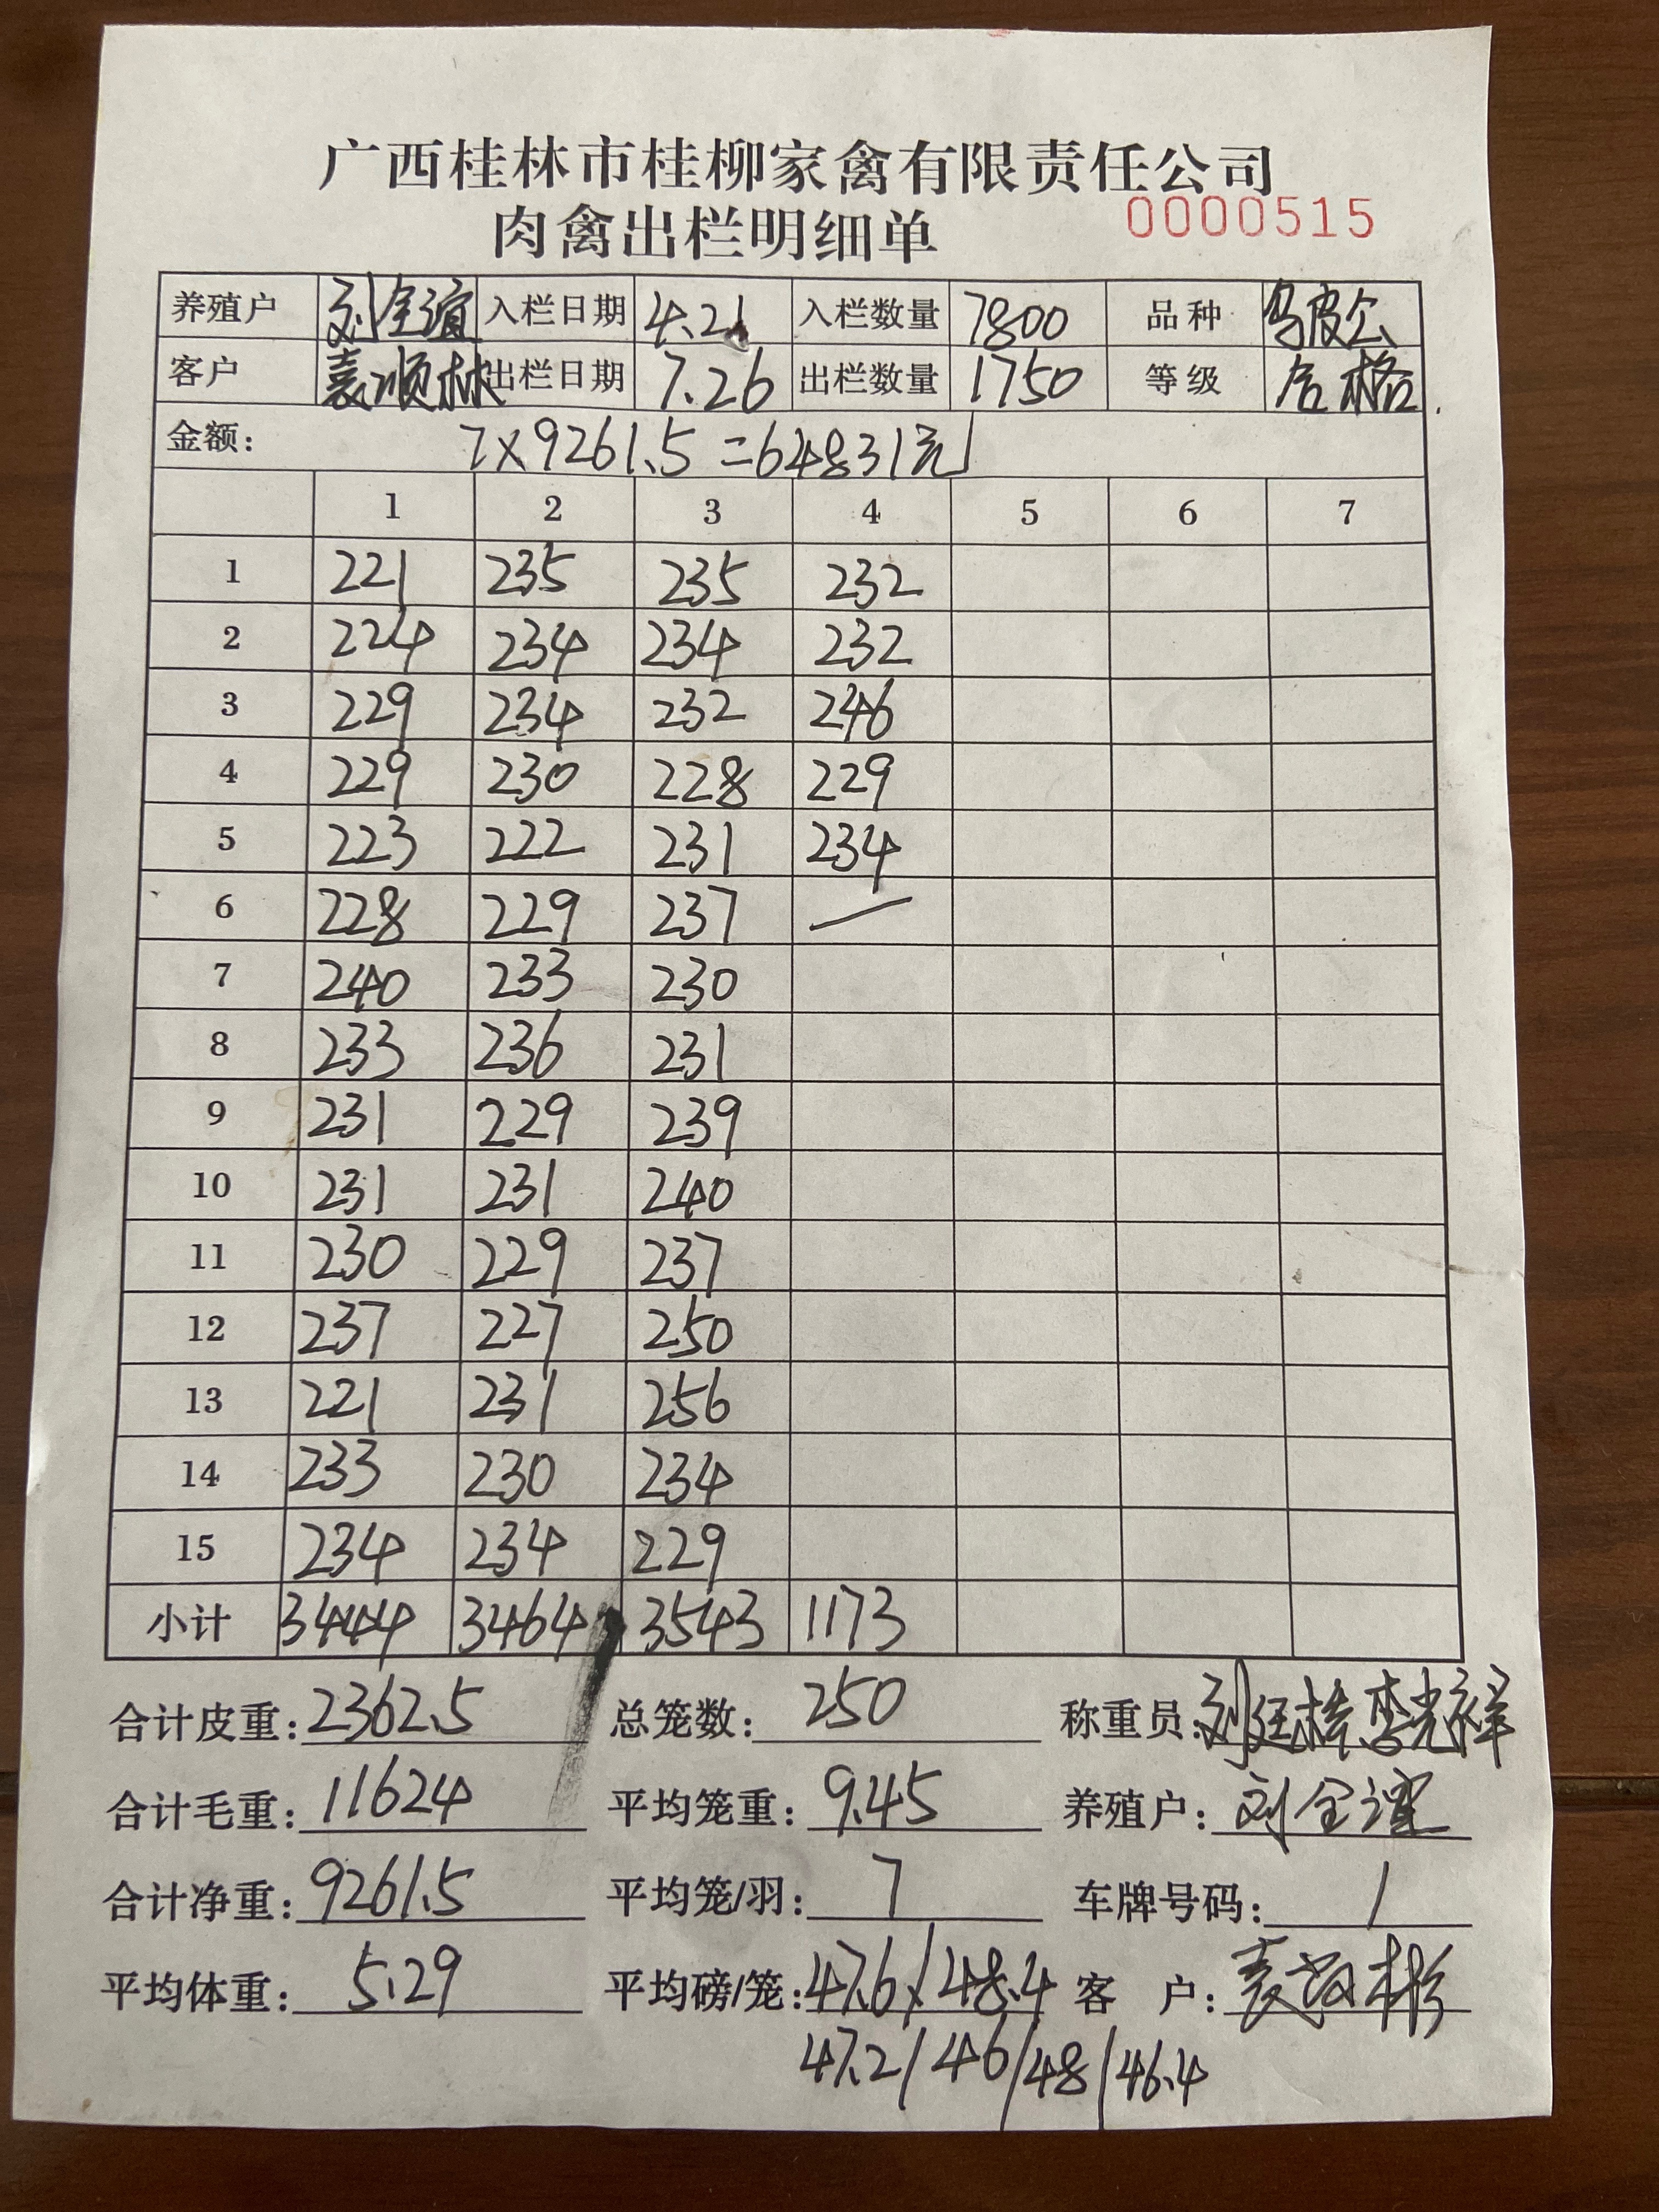 广西桂林市桂柳家禽有限责任公司
肉禽出栏明细单 0000515
养殖户 刘全谊 入栏日期 4.21 入栏数量 7800 品种 乌皮公
客户 袁顺林 出栏日期 7.26 出栏数量 1750 等级 合格
金额: 7×9261.5=64831元
1 2 3 4 5 6 7
1 221 235 235 232
2 224 234 234 232
3 229 234 232 246
4 229 230 228 229
5 223 222 231 234
6 228 229 237 —
7 240 233 230
8 233 236 231
9 231 229 239
10 231 231 240
11 230 229 237
12 237 227 250
13 221 231 256
14 233 230 234
15 234 234 229
小计 3444 3464 3543 1173
合计皮重: 2362.5 总笼数: 250 称重员: 李光祥
合计毛重: 11624 平均笼重: 9.45 养殖户: 刘全谊
合计净重: 9261.5 平均笼/羽: 7 车牌号码: /
平均体重: 5.29 平均磅/笼: 47.6/48.4 客户:
47.2/46/48/46.4